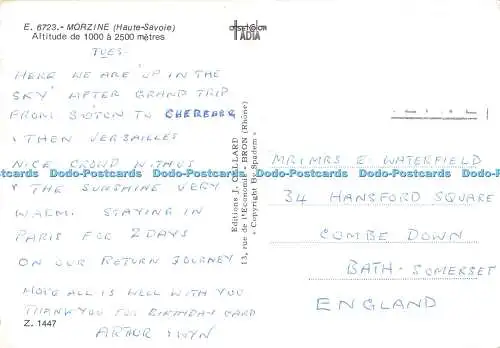 E. 6723.- MORZINE (Haute-Savoie)
Altitude de 1000 à 2500 mètres
TUES-
HERE WE ARE 'UP IN THE
SKY' AFTER GRAND TRIP
FROM S'OTON TO CHERBERG
, THEN VERSAILLES
NICE CROWD WITH US
& THE SUNSHINE VERY
WARM. STAYING IN
PARIS FOR 2 DAYS
ON OUR RETURN JOURNEY
HOPE ALL IS WELL WITH YOU
THANK YOU FOR BIRTHDAY CARD
ARTHUR & WYN
Z. 1447
OFFSET COLOR
ADIA
Editions J. CELLARD
13, rue de l'Economie - BRON (Rhône)
« Copyright By Spadem »
MR & MRS E. WATERFIELD
34 HANSFORD SQUARE
COMBE DOWN
BATH - SOMERSET
ENGLAND
Dodo-Postcards Dodo-Postcards Dodo-Postcards Dodo-Postcards Dodo-Postcards